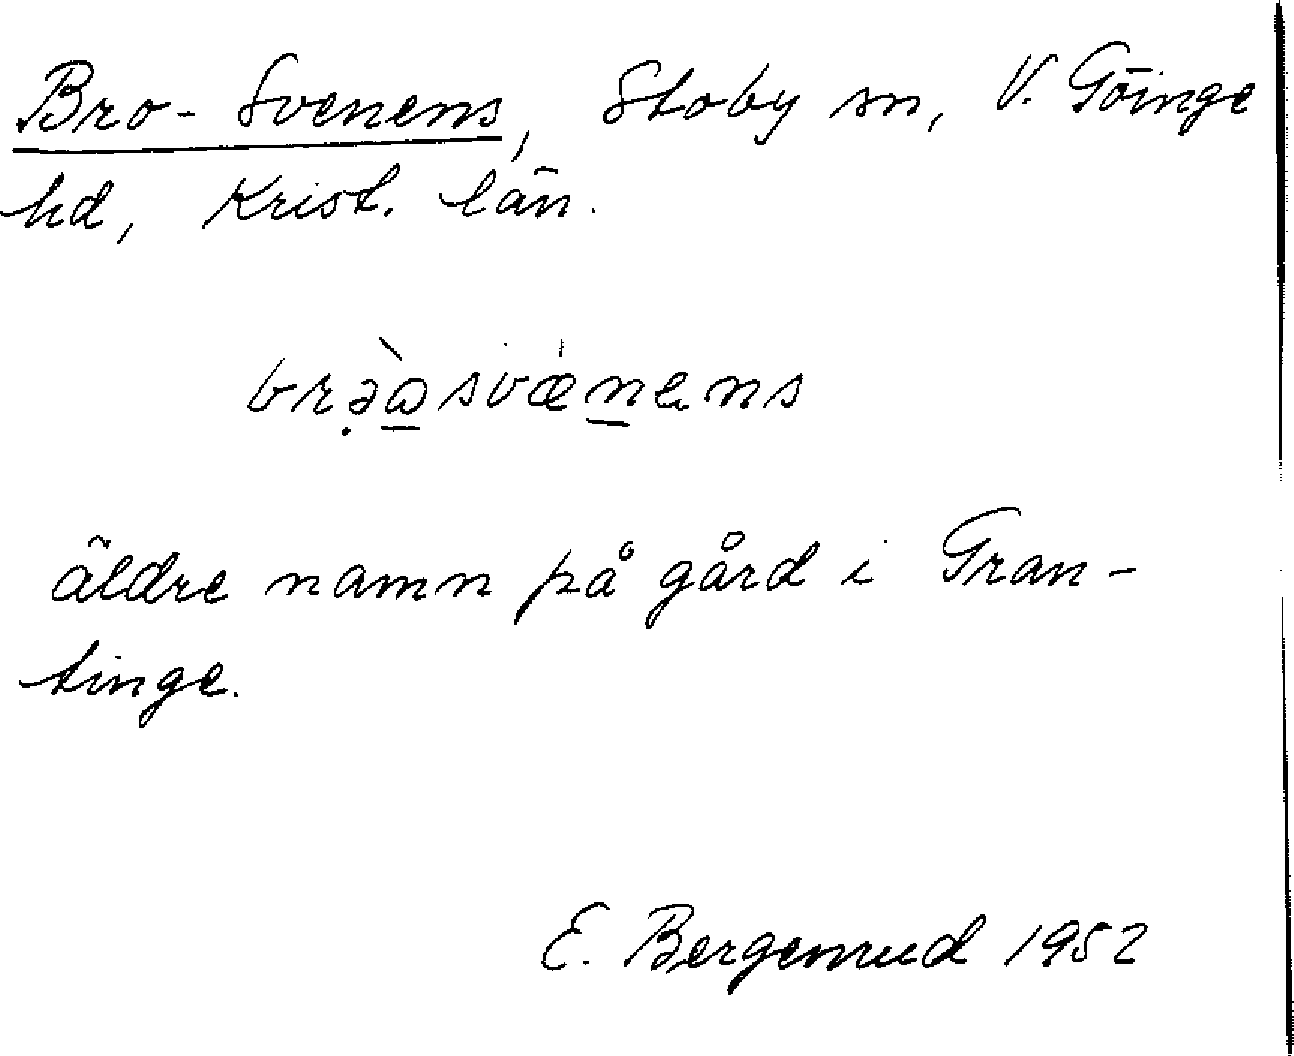 Bro-Svenens, Stoby sn, V. Göinge
hd, Krist. län.
brə̣̀a̲svæ̍n̲ens
äldre namn på gård i Gran-
tinge.
E. Bergemrud 1952